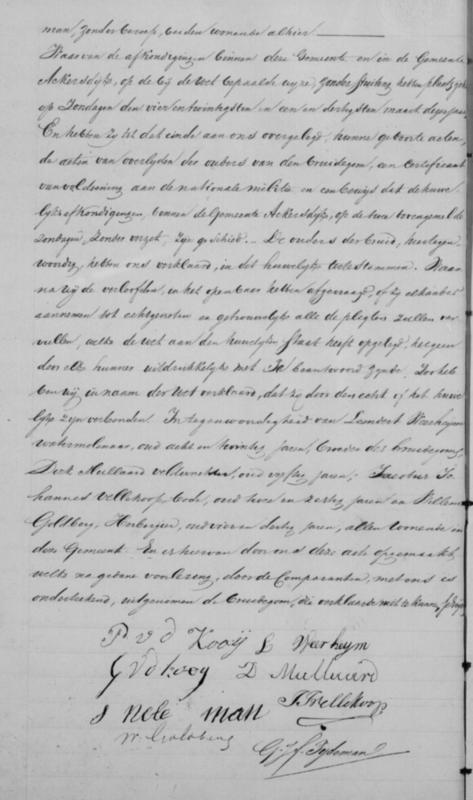 man, zonder beroep, beiden wonende alhier.
Waarvan de afkondigingen binnen deze Gemeente en in de Gemeente
Ackersdijk, op de bij de wet bepaalde wijze, zonder stuiting hebben plaats
op Zondagen den vier en twintigsten en een en dertigsten maart dezes jaars
En hebben zij tot dat einde aan ons overgelegd, hunne geboorte acten,
de actens van overlijden der ouders van den bruidegom, een certificaat
van voldoening aan de nationale militie en een bewijs dat de huwe-
lijks afkondigingen, binnen de Gemeente Ackersdijk, op de twee bovengemelde
zondagen, zonder verzet, zijn geschied. De ouders der bruid, hier tegen-
woordig, hebben ons verklaard, in dit huwelijk toe te stemmen. Waar
na wij de verloofden, in het openbaar hebben afgevraagd, of zij elkander
aannemen tot echtgenoten en getrouwelijk alle de plegten zullen ver-
vullen, welke de wet aan den huwelijken staat heeft opgelegd, hetgeen
door elk hunner uitdrukkelijk met Ja beantwoord zijnde, zoo heb
ben wij in naam der wet verklaard, dat zij door den echt of het huwe-
lijk zijn verbonden. In tegenwoordigheid van Lambert Weerheym
watermolenaar, oud acht en twintig jaren, broeder des bruidegoms,
Dirk Mulluard veldwachter, oud vijftig jaren, Jacobus Jo-
hannes Vellekoop bode, oud twee en dertig jaren en Willem
Goldberg, Herbergier, oud vier en dertig jaren, allen wonende in
deze Gemeente. En is hiervan door ons deze acte opgemaakt,
welke na gedane voorlezing, door de Comparanten, met ons is
onderteekend, uitgenomen de bruidegom, die verklaarde niet te kunnen
P v d Kooij L Weerheym
G V d kooy D Mulluard
S nele man J J Vellekoop
W. Goldberg
G. J. f. Tydeman